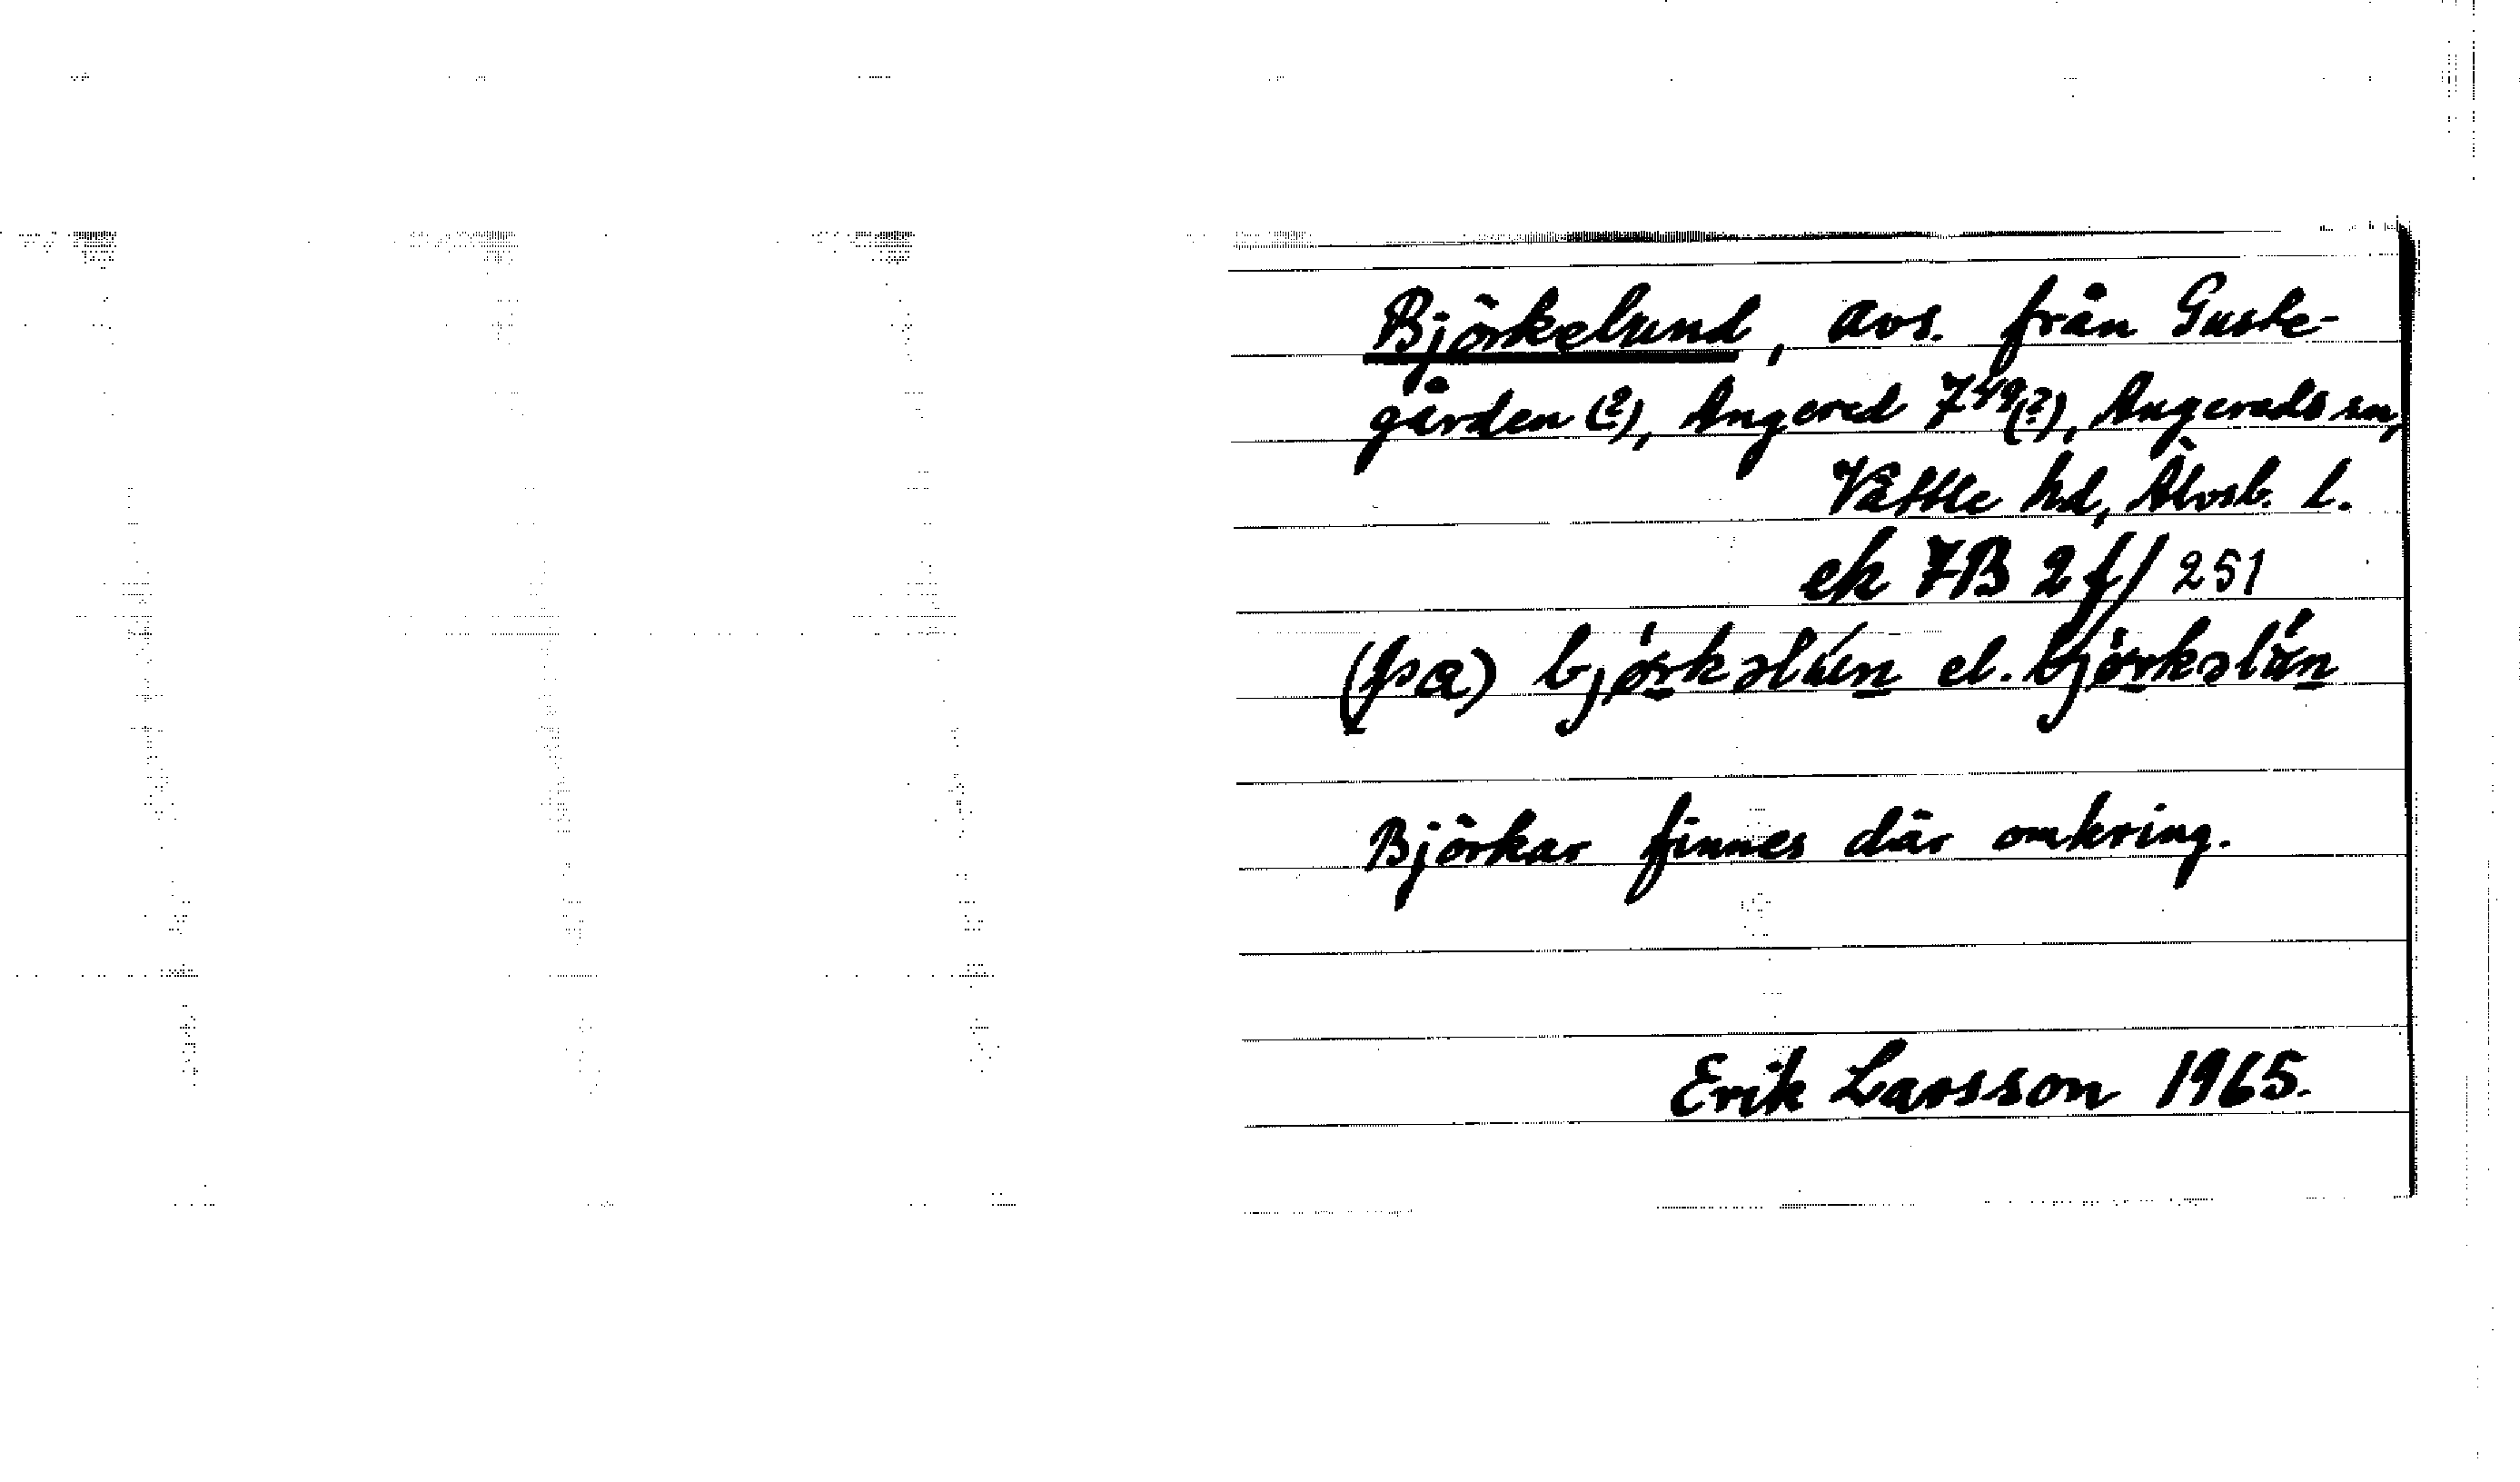 Björkelund, avs. från Guste-
gården (?), Angered 7⁴⁹(?), Angereds sn,
Vättle hd, Älvsb. l.
ek 7B 2f/251
(pa) el.
Björkar finnes där omkring.
Erik Larsson 1965.